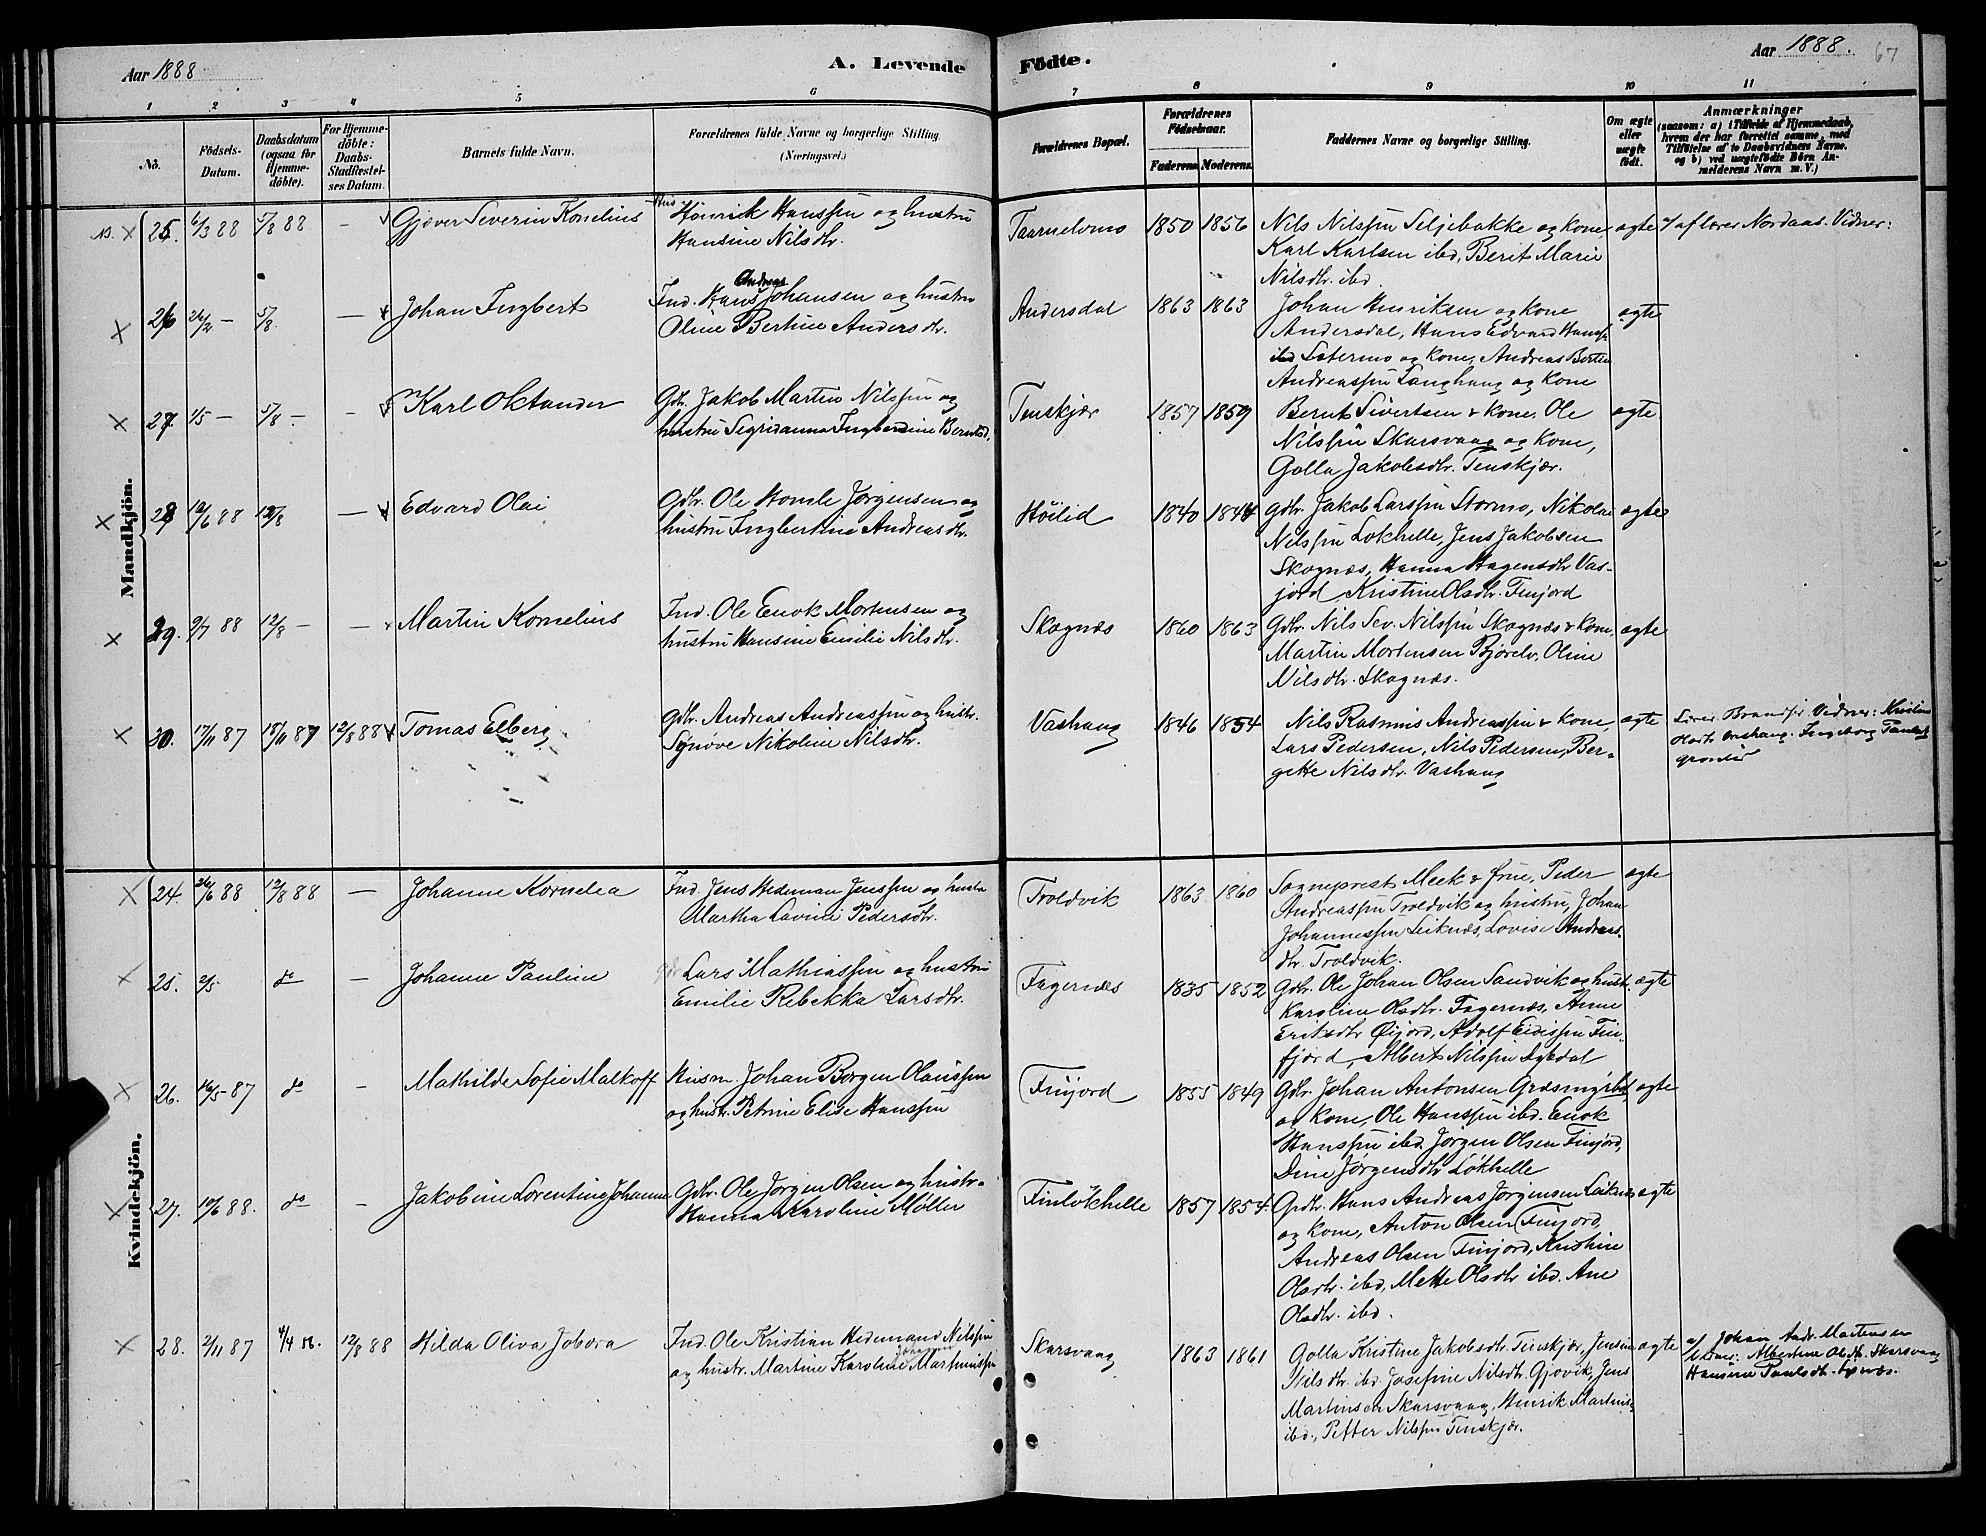 Aar 1888
A. Levende Födte.
Aar 1888.
67
1 2 3 4 5 6 7 8 9 10 11
No.
Födsels-Datum.
Daabsdatum (ogsaa for Hjemme-döbte).
For Hjemme-döbte: Daabs-Stadfestel-ses Datum.
Barnets fulde Navn.
Forældrenes fulde Navne og borgerlige Stilling.
(Næringsvei.)
Forældrenes Bopæl.
Forældrenes Födselsaar.
Faderens. Moderens.
Faddernes Navne og borgerlige Stilling.
Om ægte eller uægte födt.
Anmærkninger
(saasom: a) i Tilfælde af Hjemmedaab,
hvem der har forrettet samme, med
Tilföielse af to Daabsvidners Navne.
og b) ved uægtefödte Börn An-
melderens Navn m. V.)
Mandkjön.
25. 6/3 88 5/8 88 — Gjøver Severin Kornelius
Ind. Henrik Hanssen og hustru
Hansine Nilsdtr.
Taarnelvmo 1850 1856
Nils Nilssen Seljebakke og kone
Karl Karlsen ibd, Berit Marie
Nilsdtr. ibd
ægte
a/ af lærer Nordaas. Vidner:
26 26/2 — 5/8. — Johan Ingbert
Andreas
Ind. Hans Johansen og hustru
Oline Bertine Andersdtr.
Andersdal 1863 1863
Johan Henriksen og kone
Andersdal, Hans Edvard Hanss.
ibd Sætermo og kone, Andreas Bertin
Andreassen Langhaug og kone
ægte
27. 1/5 — 5/8 — — Karl Oktander
Gdbr. Jakob Martin Nilssen og
hustru Sigridanna Ingberdine Berntsd.
Tenskjær 1857 1859
Bernt Sivertsen & kone, Ole
Nilssen Skarsvaag og kone,
Golla Jakobsdtr. Tenskjær.
ægte
28 12/6 88 12/8 — Edvard Olai
Gdbr. Ole Homle Jørgensen og
hustru Ingbertine Andreasdtr.
Höilid 1840 1844
Gdbr. Jakob Larssen Stormo, Nikolai
Nilssen Lökhelle, Jens Jakobsen
Skognæs, Hanna Hagensdtr. Vas-
jord Kristine Olsdtr. Finjord
ægte
29. 9/7 88 12/8 — — Martin Kornelius
Ind. Ole Enok Mortensen og
hustru Hansine Emilie Nilsdtr.
Skognæs 1860 1863
Gdbr. Nils Sev. Nilssen Skognæs & kone,
Martin Mortensen Bjørelv, Oline
Nilsdtr. Skognæs.
ægte
30. 17/11 87 18/11 87 12/8 88 Tomas Elberg
Gdbr. Andreas Andreassen og hustr.
Synøve Nikoline Nilsdtr.
Vashaug 1846 1854
Nils Rasmus Andreassen & kone,
Lars Pedersen, Nils Pedersen, Ber-
gette Nilsdtr. Vashaug
ægte
Lærer Vidner: Kristine
Olsdtr. Vashaug. Ingeborg
Kvindekjön.
24. 26/6 88 12/8 88 — Johanne Kornelea
Ind. Jens Hedeman Jenssen og hustru
Martha Lavine Pedersdtr.
Troldvik 1863 1860
Sogneprest Meek & frue, Peder
Andreassen Troldvik og hustru, Johan
Johannessen Leiknæs, Lovise Andreas-
dtr. Troldvik.
ægte
25. 2/5 do — Johanne Pauline
Lars Mathiassen og hustru
Emilie Rebekka Larsdtr.
Fagernæs 1835 1852
Gdbr. Ole Johan Olsen Sandvik og hust.
Karoline Olsdtr. Fagernæs, Anne
Eriksdtr. Øijord, Adolf Eidissen Fin-
fjord, Albert Nilssen
ægte
26. 16/5 - 87 do - Mathilde Sofie Malkoff
Husm. Johan Borgen Olaussen
og hustr. Petrine Elise Hanssen
Finjord 1855 1849
Gdbr. Johan Antonsen Græsmyrbot
og kone, Ole Hanssen ibd. Enok
Hanssen ibd. Jörgen Olsen Finjord,
Dine Jørgensdtr. Lökhelle
ægte
27. 10/6 88. do - Jakobine Lorentine Johanne
Gdbr. Ole Jörgen Olsen og hustr.
Hanna Karoline Møller
Finlökhelle 1857 1854
Grdbr. Hans Andreas Jørgensen Leiknæs
og kone, Anton Olsen Finjord,
Andreas Olsen Finjord, Kristine
Olsdtr. ibd, Mette Olsdtr ibd. Ane
Olsdtr. ibd.
ægte
28. 2/11 87 4/4 88. 12/8 88 Hilda Oliva Jobora
Ind. Ole Kristian Hedemand Nilssen
og hustr. Martine Karoline Martinussen
Skarsvaag 1863 1861
Golla Kristine Jakobsdtr. Tenskjær, Jensine
Nilsdtr. ibd Josefine Nilsdtr. Gjovik, Jens
Martinsen Skarsvaag, Henrik Martins.
ibd., Petter Nilssen Tenskjær.
ægte
a/ Johan Andr. Martensen
Vidner: Albertine Olsdtr. Skarsvaag
Hansine Paulsdtr.